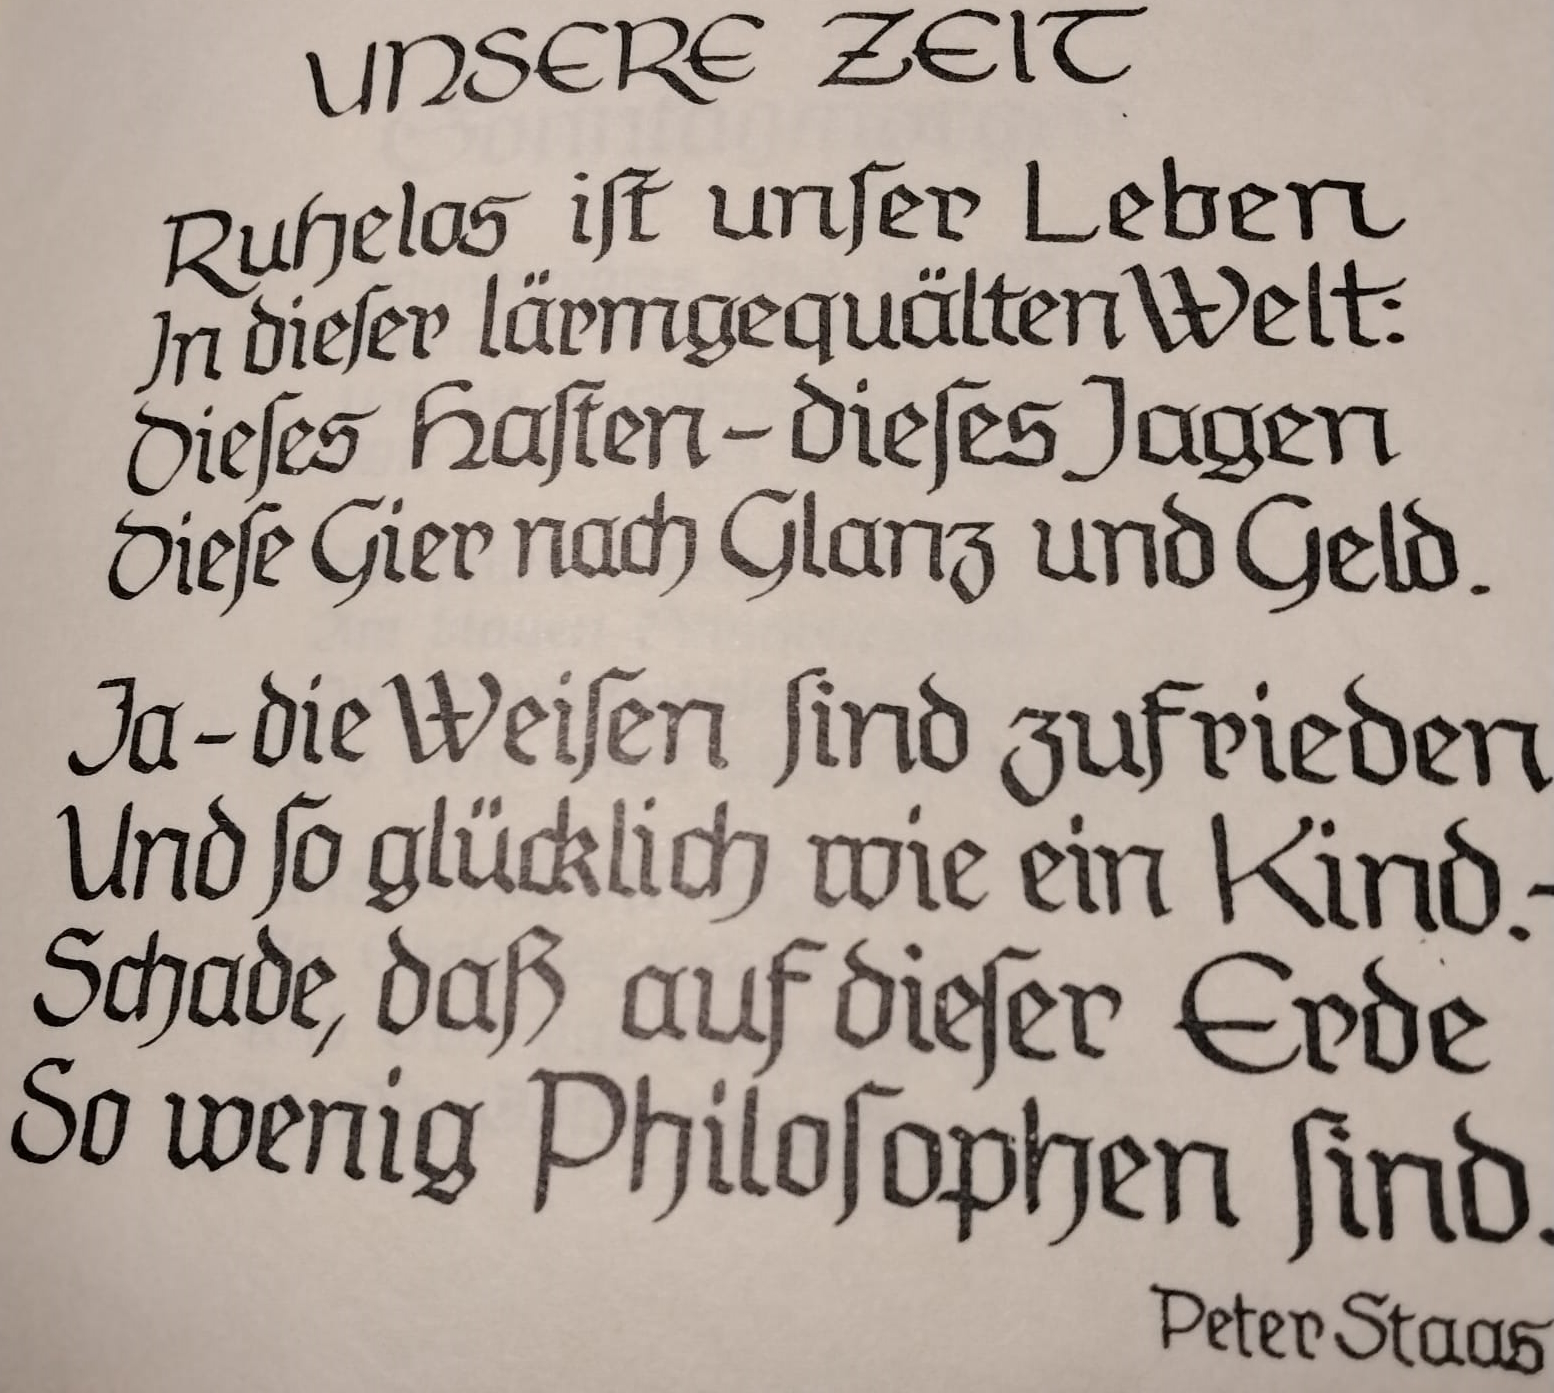 UNSERE ZEIT
Ruhelos iſt unſer Leben
In dieſer lärmgequälten Welt:
Dieſes Haſten - dieſes Jagen
Dieſe Gier nach Glanz und Geld.
Ja - die Weiſen ſind zufrieden
Und ſo glücklich wie ein Kind.-
Schade, daß auf dieſer Erde
So wenig Philoſophen ſind.
Peter Staas